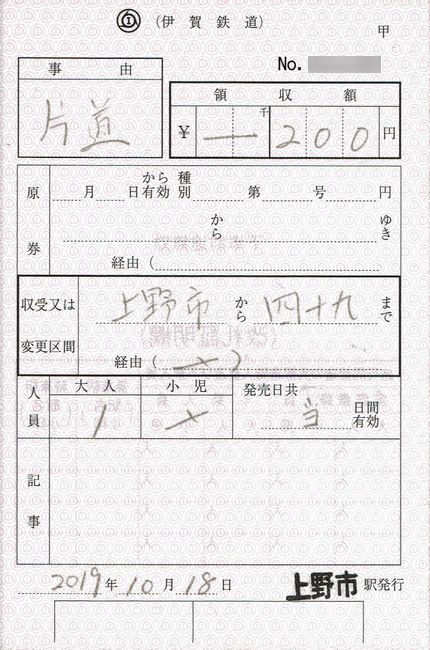 (伊賀鉄道)
甲
No.
事由
領収額
片道
千
¥ — 200円
原券
から 種
月 日有効 別 第 号 円
から ゆき
経由(
収受又は変更区間
上野市から四十九まで
経由(×)
人員
大人 小児 発売日共
1 × 当日間有効
記事
2019年10月18日 上野市駅発行